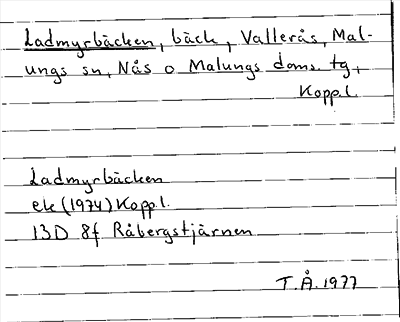 Ladmyrbäcken, bäck, Vallerås, Mal-
ungs sn, Nås o Malungs doms. tg,
Kopp.l.
Ladmyrbäcken
ek (1974) Kopp.l.
13D 8f Råbergstjärnen
T.Å. 1977